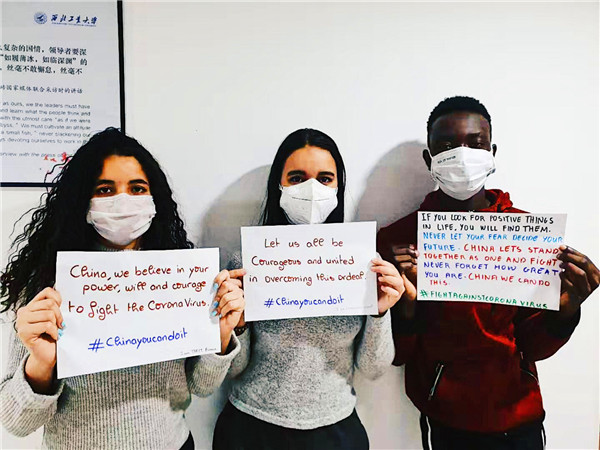 西北工业大学
复杂的国情，领导者要深
“如履薄冰，如临深渊”的
丝毫不敢懈怠，丝毫不
国家媒体联合采访时的讲话
as ours, we the leaders must have
learn what the people think and
with the utmost care "as if we were
" We must cultivate an attitude
small fish, " never slackening our
devoting ourselves to work in
with the press
China, we believe in your
power, will and courage
to fight the CoronaVirus.
#Chinayoucandoit
Let us all be
Courageous and united
in overcoming this ordeal.
#Chinayoucandoit
IF YOU LOOK FOR POSITIVE THINGS
IN LIFE, YOU WILL FIND THEM.
NEVER LET YOUR FEAR DECIDE YOUR
FUTURE. CHINA LETS STAND
TOGETHER AS ONE AND FIGHT
NEVER FORGET HOW GREAT
YOU ARE. CHINA WE CAN DO
THIS.
#FIGHTAGAINSTCORONAVIRUS